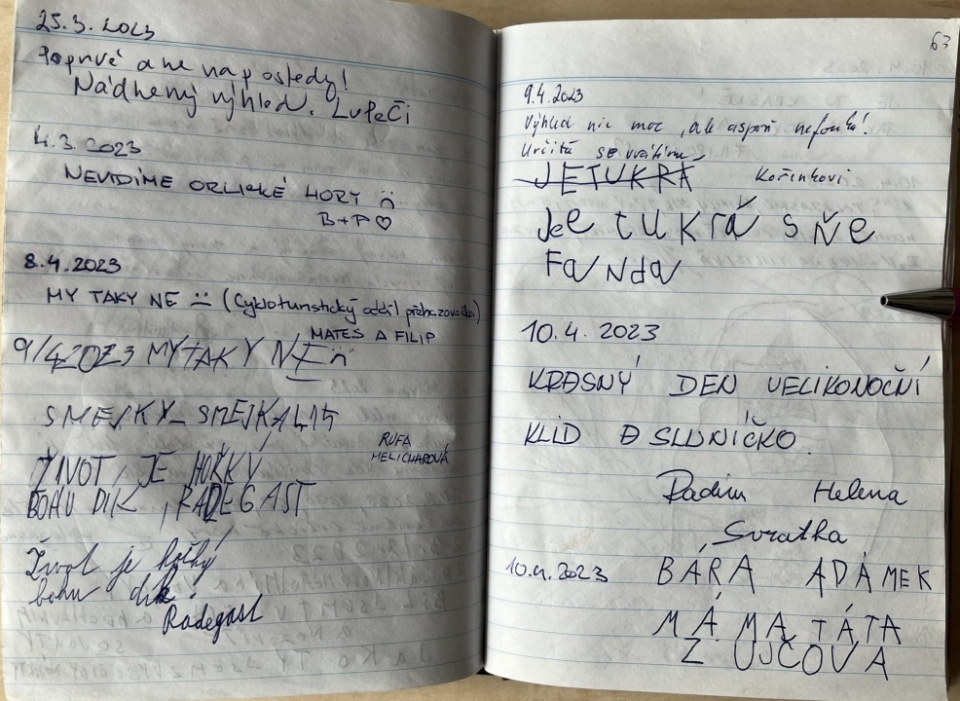 25.3.2023
Poprvé a ne naposledy!
Nádherný výhled. Lupeči
4.3.2023
NEVIDÍME ORLICKÉ HORY
B+P♡
8.4.2023
MY TAKY NE (Cykloturistický oddíl
MATES A FILIP
9/4 2023 MY TAKY NE
SMEJKY_SMEJKAL15
RUFA
MELICHAROVÁ
ŽIVOT, JE HOŘKÝ
BOHU DIK, RADEGAST
Život je hořký
bohu dík
Radegast
63
9.4.2023
Výhled nic moc, ale aspoň nefouká!
Určitě se vrátíme,
JETUKRA
Kořínkovi
Jee tu krá s ňe
Fanda
10.4.2023
KRÁSNÝ DEN VELIKONOČNÍ
KLID A SLUNÍČKO.
Radim Helena
Svratka
10.4.2023 BÁRA ADÁMEK
MÁMA TÁTA
Z UJČOVA